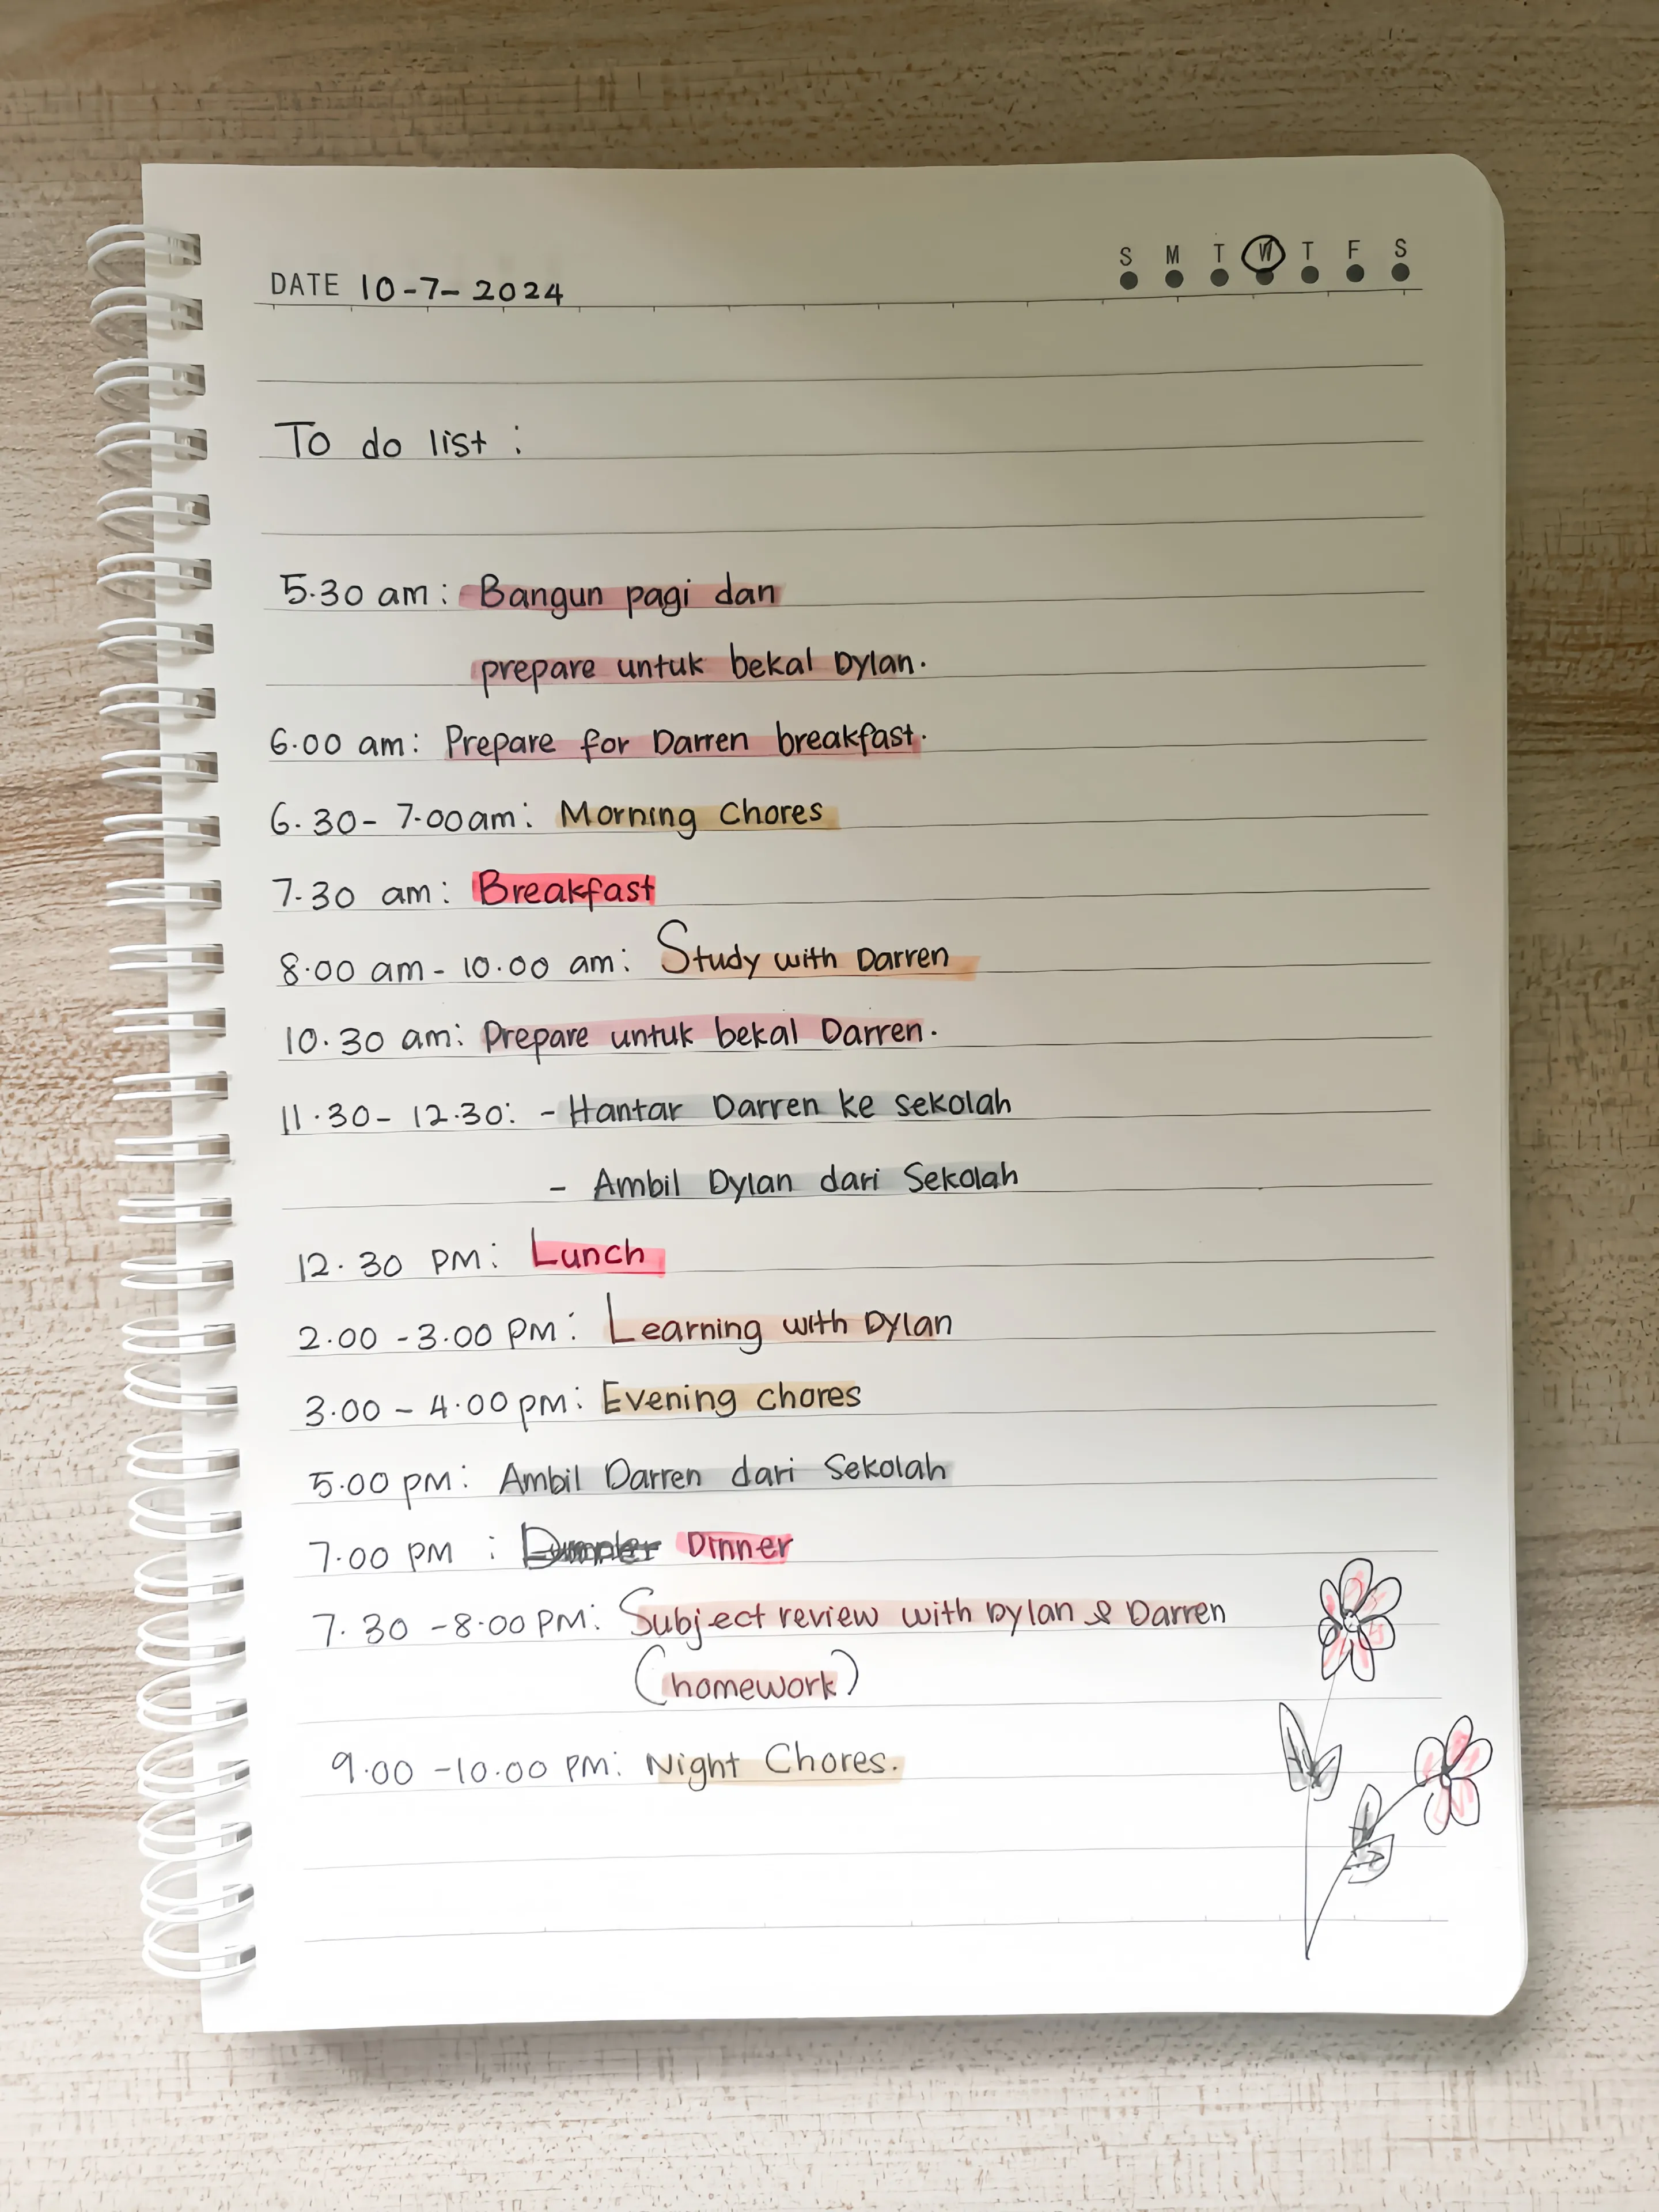 S M T W T F S
DATE 10-7-2024
To do list :
5.30 am : Bangun pagi dan
prepare untuk bekal Dylan.
6.00 am : Prepare for Darren breakfast.
6.30 - 7.00 am : Morning Chores
7.30 am : Breakfast
8.00 am - 10.00 am : Study with Darren
10.30 am : Prepare untuk bekal Darren.
11.30 - 12.30 : - Hantar Darren ke sekolah
- Ambil Dylan dari Sekolah
12.30 PM : Lunch
2.00 - 3.00 PM : Learning with Dylan
3.00 - 4.00 pm : Evening chores
5.00 pm : Ambil Darren dari Sekolah
7.00 PM : Dinner
7.30 - 8.00 PM : Subject review with Dylan & Darren
(homework)
9.00 - 10.00 PM : Night Chores.